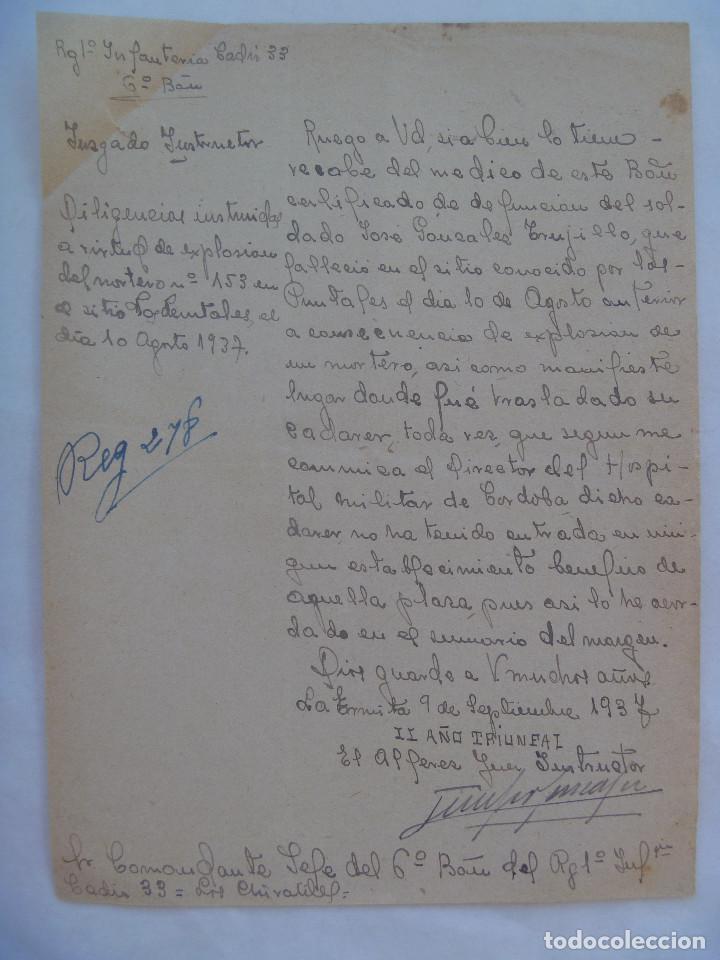 Rgto Infanteria Cadiz 33
6º Bón
Juzgado Instructor
Diligencias instruidas
a virtud de explosion
del mortero nº 153 en
el sitio los
dia 10 Agosto 1937.
Reg 278
Ruego a Vd, si a bien lo tiene
recabe del medico de este Bón
certificado de defuncion del sol-
dado José Gonzalez Trujillo, que
falleció en el sitio conocido por los
Puntales el dia 10 de Agosto anterior
a consecuencia de explosion de
un mortero, asi como manifieste
lugar donde fué trasladado su
cadaver, toda vez, que segun me
comunica el Director del Hospi-
tal Militar de Cordoba dicho ca-
daver, no ha tenido entrada en nin-
gun establecimiento benefico de
aquella plaza, pues asi lo he acor-
dado en el sumario del margen.
Dios guarde a V muchos años
La Ermita 9 de Septiembre 1937
II AÑO TRIUNFAL
El Alferez Juez Instructor
Sr Comandante Jefe del 6º Bón del Rgto Infria
Cadiz 33 = Los
todocoleccion.net